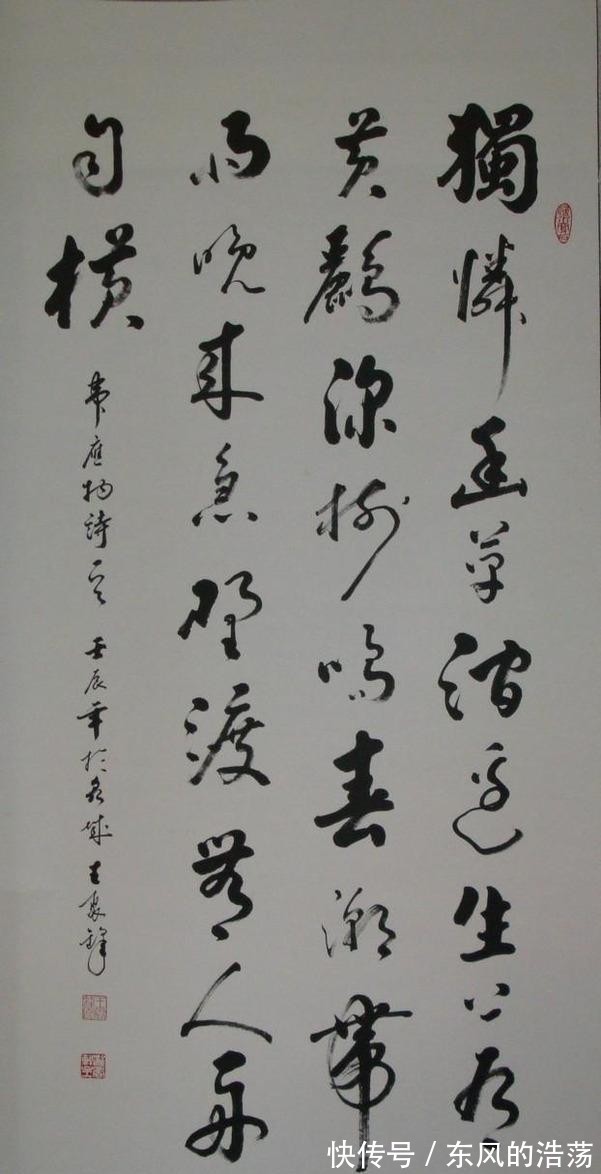 獨憐幽草澗邊生上有
黄鸝深樹鳴春潮帶
雨晚來急野渡無人舟
自横
韋應物詩一首 壬辰年於城
快传号 / 东风的浩荡